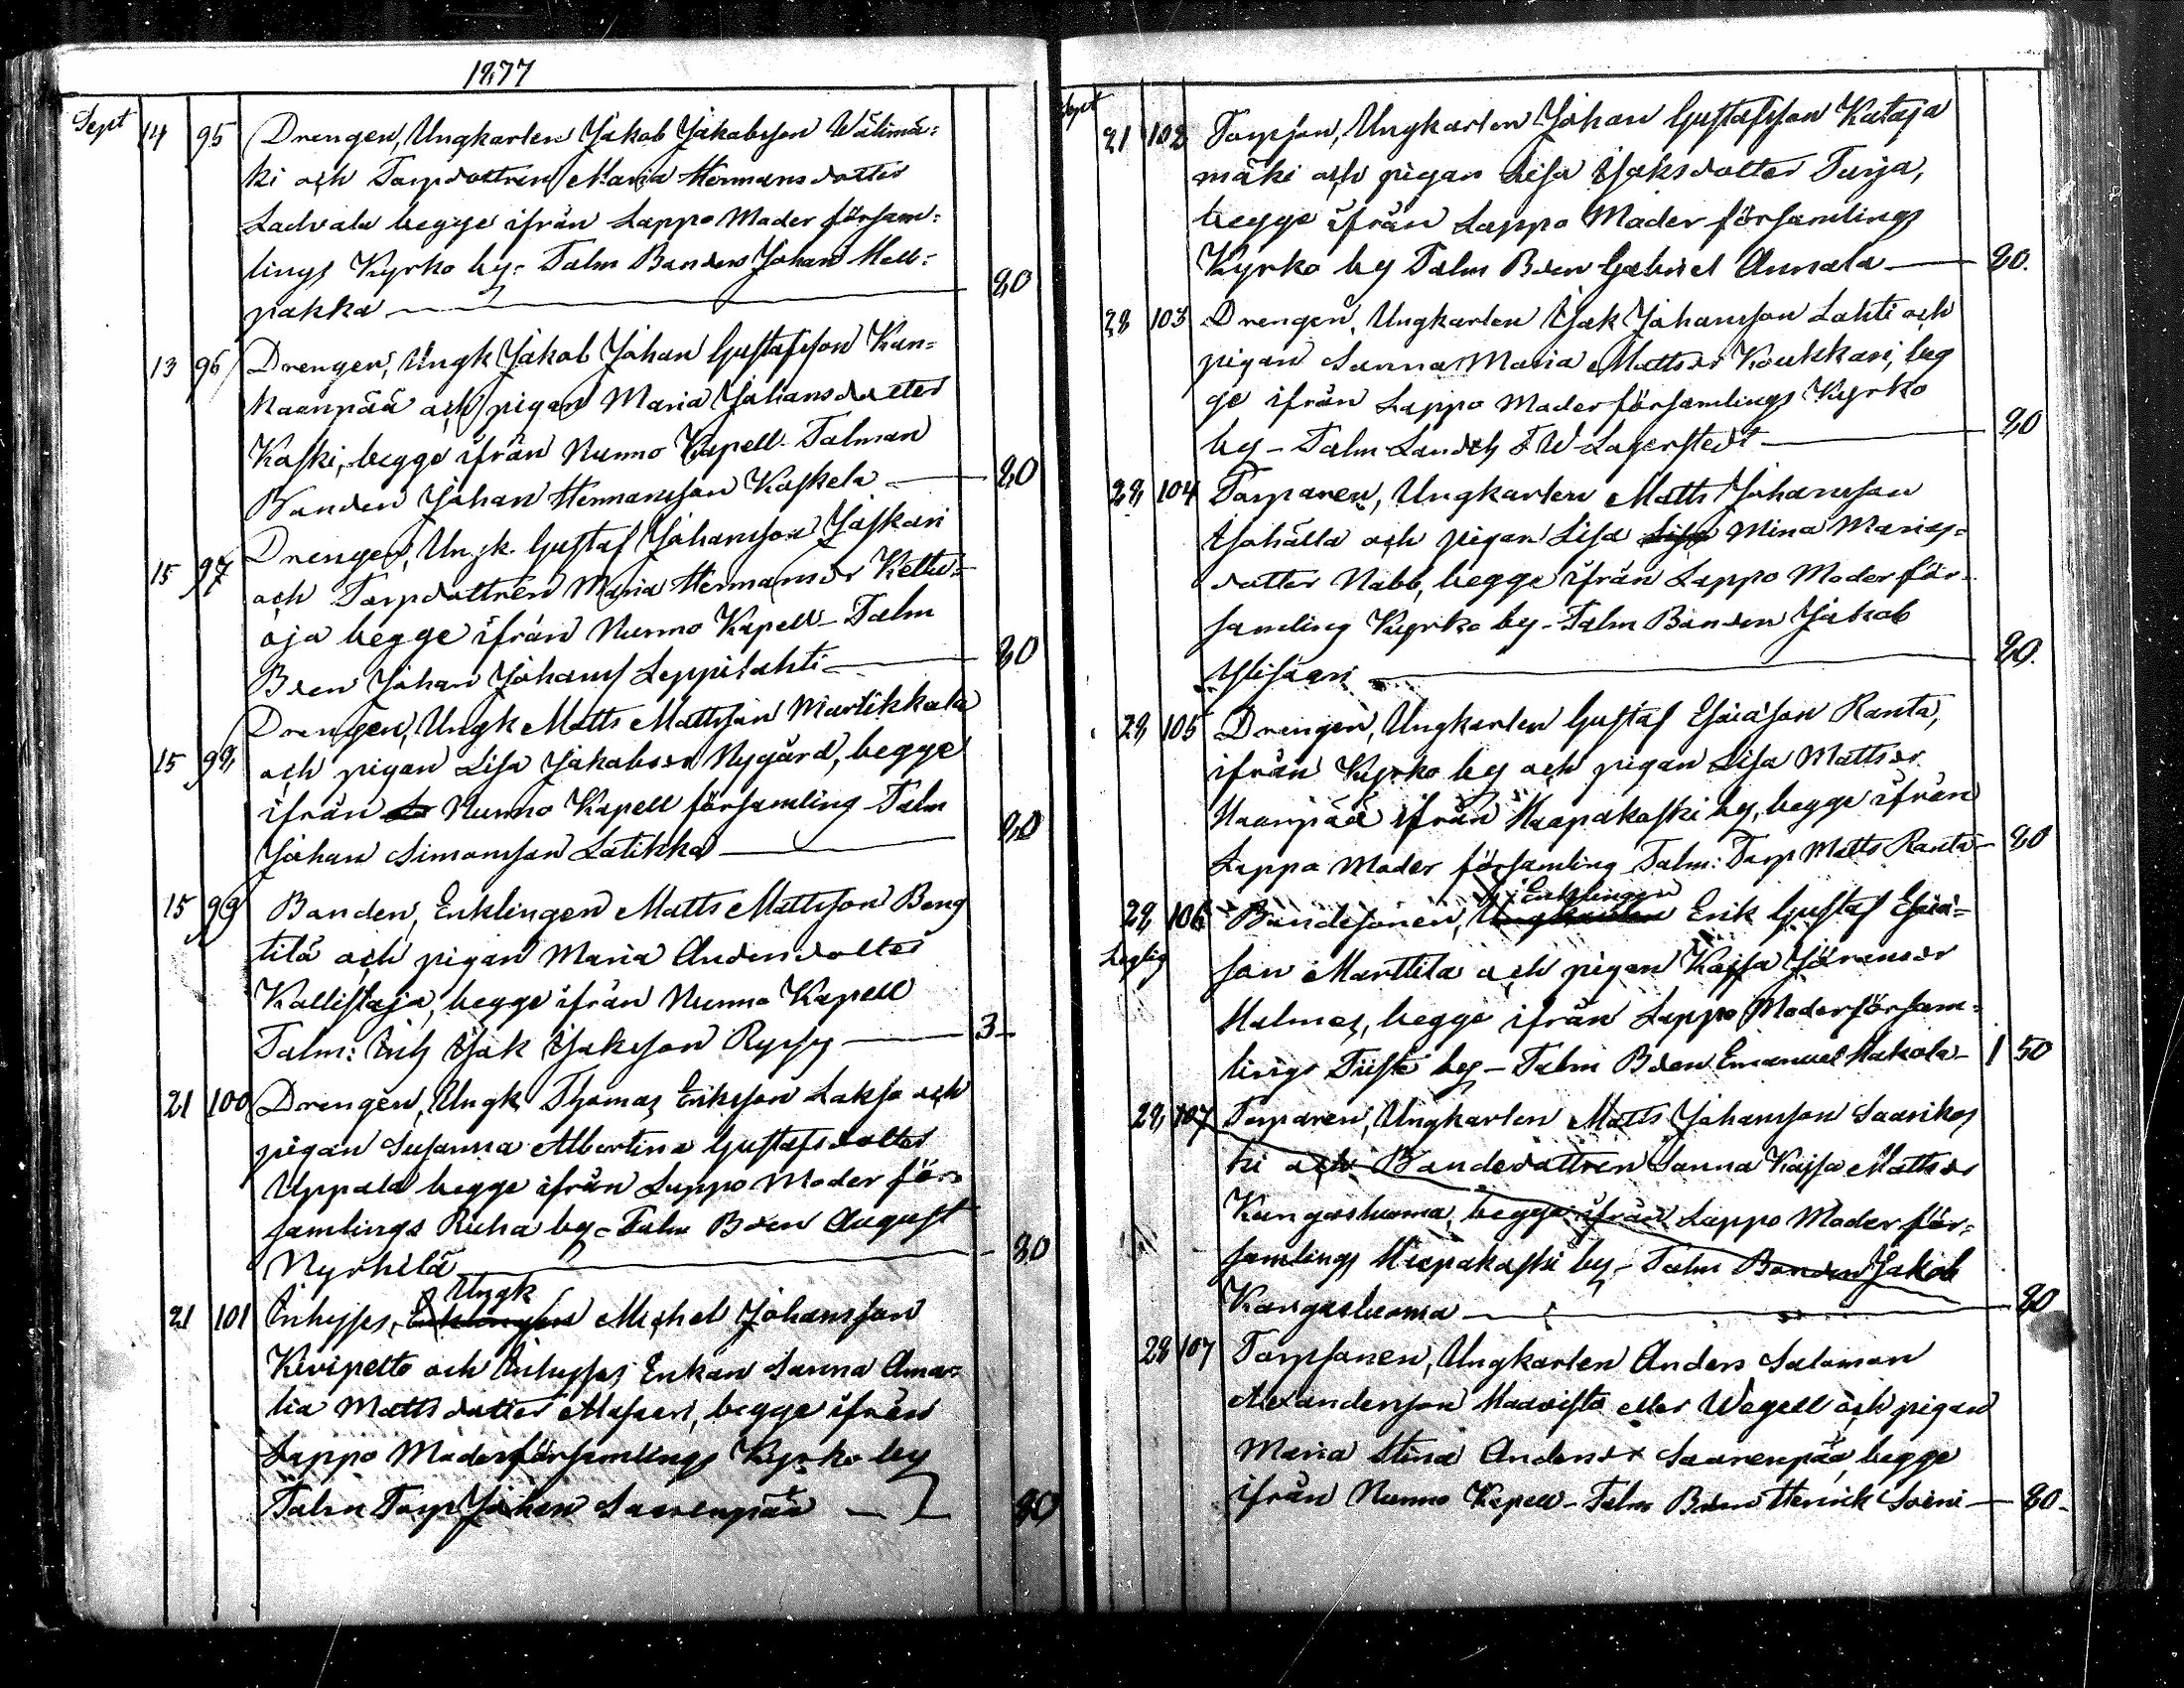 1877
Sept 14 95 Drengen, Ungkarlen Jakob Jakobsson Wälimä=
ki och Torpdottren Maria Hermansdotter
Ladvala begge ifrån Lappo Moder försam=
lings Kyrko by- Talm Bonden Johan Hell=
pakka — 80
13 96 Drengen, Ungk Jakob Johan Gustafsson Kan=
kaanpää och pigan Maria Johansdotter
Koski, begge ifrån Nurmo Kapell- Talman
Bonden Johan Hermansson Koskela — 80
15 97 Drengen, Ungk. Gustaf Johansson Jaskari
och Torpdottren Maria Hermansdr Kettu=
oja begge ifrån Nurmo Kapell- Talm
Bden Johan Johans Leppilahti — 80
15 98 Drengen, Ungk Matts Mattsson Martikkala
och pigan Lisa Jakobsdr Nygård, begge
ifrån Nurmo Kapell församling Talm
Johan Simonsson Latikka — 80
15 99 Bonden, Enklingen Matts Mattsson Beng
tilä och pigan Maria Andersdotter
Kallistaja, begge ifrån Nurmo Kapell
Talm: Isak Isaksson Ryssy — 3-
21 100 Drengen, Ungk Thomas Eriksson Lakso och
pigan Susanna Albertina Gustafsdotter
Uppala begge ifrån Lappo Moder för=
samlings Ruha by- Talm Bden August
Nyrhilä — 80
Ungk
21 101 Inhyses, Enklingen Michel Johansson
Kivipelto och Inhyses Enkan Sanna Ama=
lia Mattsdotter Masari, begge ifrån
Lappo Moderförsamlings Kyrko by
Talm Torp Johan Saarenpää — 80
Sept
21 102 Torpson, Ungkarlen Johan Gustafsson Kataja
mäki och pigan Lisa Isaksdotter Turja,
begge ifrån Lappo Moder församlings
Kyrko by Talm Bden Gabriel Annala — 80.
28 103 Drengen, Ungkarlen Isak Johansson Lahti och
pigan Sanna Maria Mattsdr Koukkari, beg
ge ifrån Lappo Moder församlings Kyrko
by - Talm Landth F W Lagerstedt — 80
28 104 Torparen, Ungkarlen Matts Johansson
Isohälla och pigan Lisa Lisa Mina Marias=
dotter Nabb, begge ifrån Lappo Moder för=
samling Kyrko by- Talm Bonden Jakob
Ylisaari — 80.
28 105 Drengen, Ungkarlen Gustaf Esaiasson Ranta,
ifrån Kyrko by och pigan Lisa Mattsdr
Haanpää ifrån Haapakoski by, begge ifrån
Lappo Moder församling Talm: Torp Matts Ranta — 80
Enklingen
28 106 Bondesonen, Ungkarlen Erik Gustaf Esaia=
Laglig son Marttila och pigan Kajsa Göransdr
Malmas, begge ifrån Lappo Moderförsam=
lings Tiiste by - Talm Bden Emanuel Hakola - 1 50
28 107 Torparen, Ungkarlen Matts Johansson Saarikos
ki och Bondedottren Sanna Kajsa Mattsdr
Kangasluoma, begge ifrån Lappo Moder för=
samlings Haapakoski by- Talm Bonden Jakob
Kangasluoma — 80
28 107 Torpsonen, Ungkarlen Anders Salomon
Alexandersson Haavisto eller Wegell och pigan
Maria Stina Andersdr Saarenpää, begge
ifrån Nurmo Kapell- Talm Bden Henrik Soini — 80-